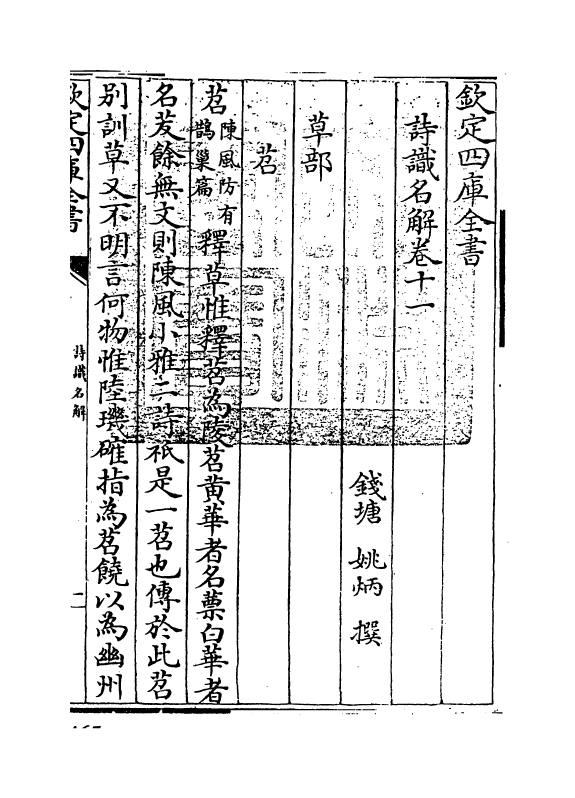 欽定四庫全書
詩識名解卷十一
錢塘 姚炳 撰
草部
苕
苕陳風防有鵲巢篇釋草惟釋苕為陵苕黄華者名蔈白華者
名茇餘無文則陳風小雅二詩祗是一苕也傳於此苕
别訓草又不明言何物惟陸璣確指為苕饒以為幽州
欽定四庫全書
詩識名解